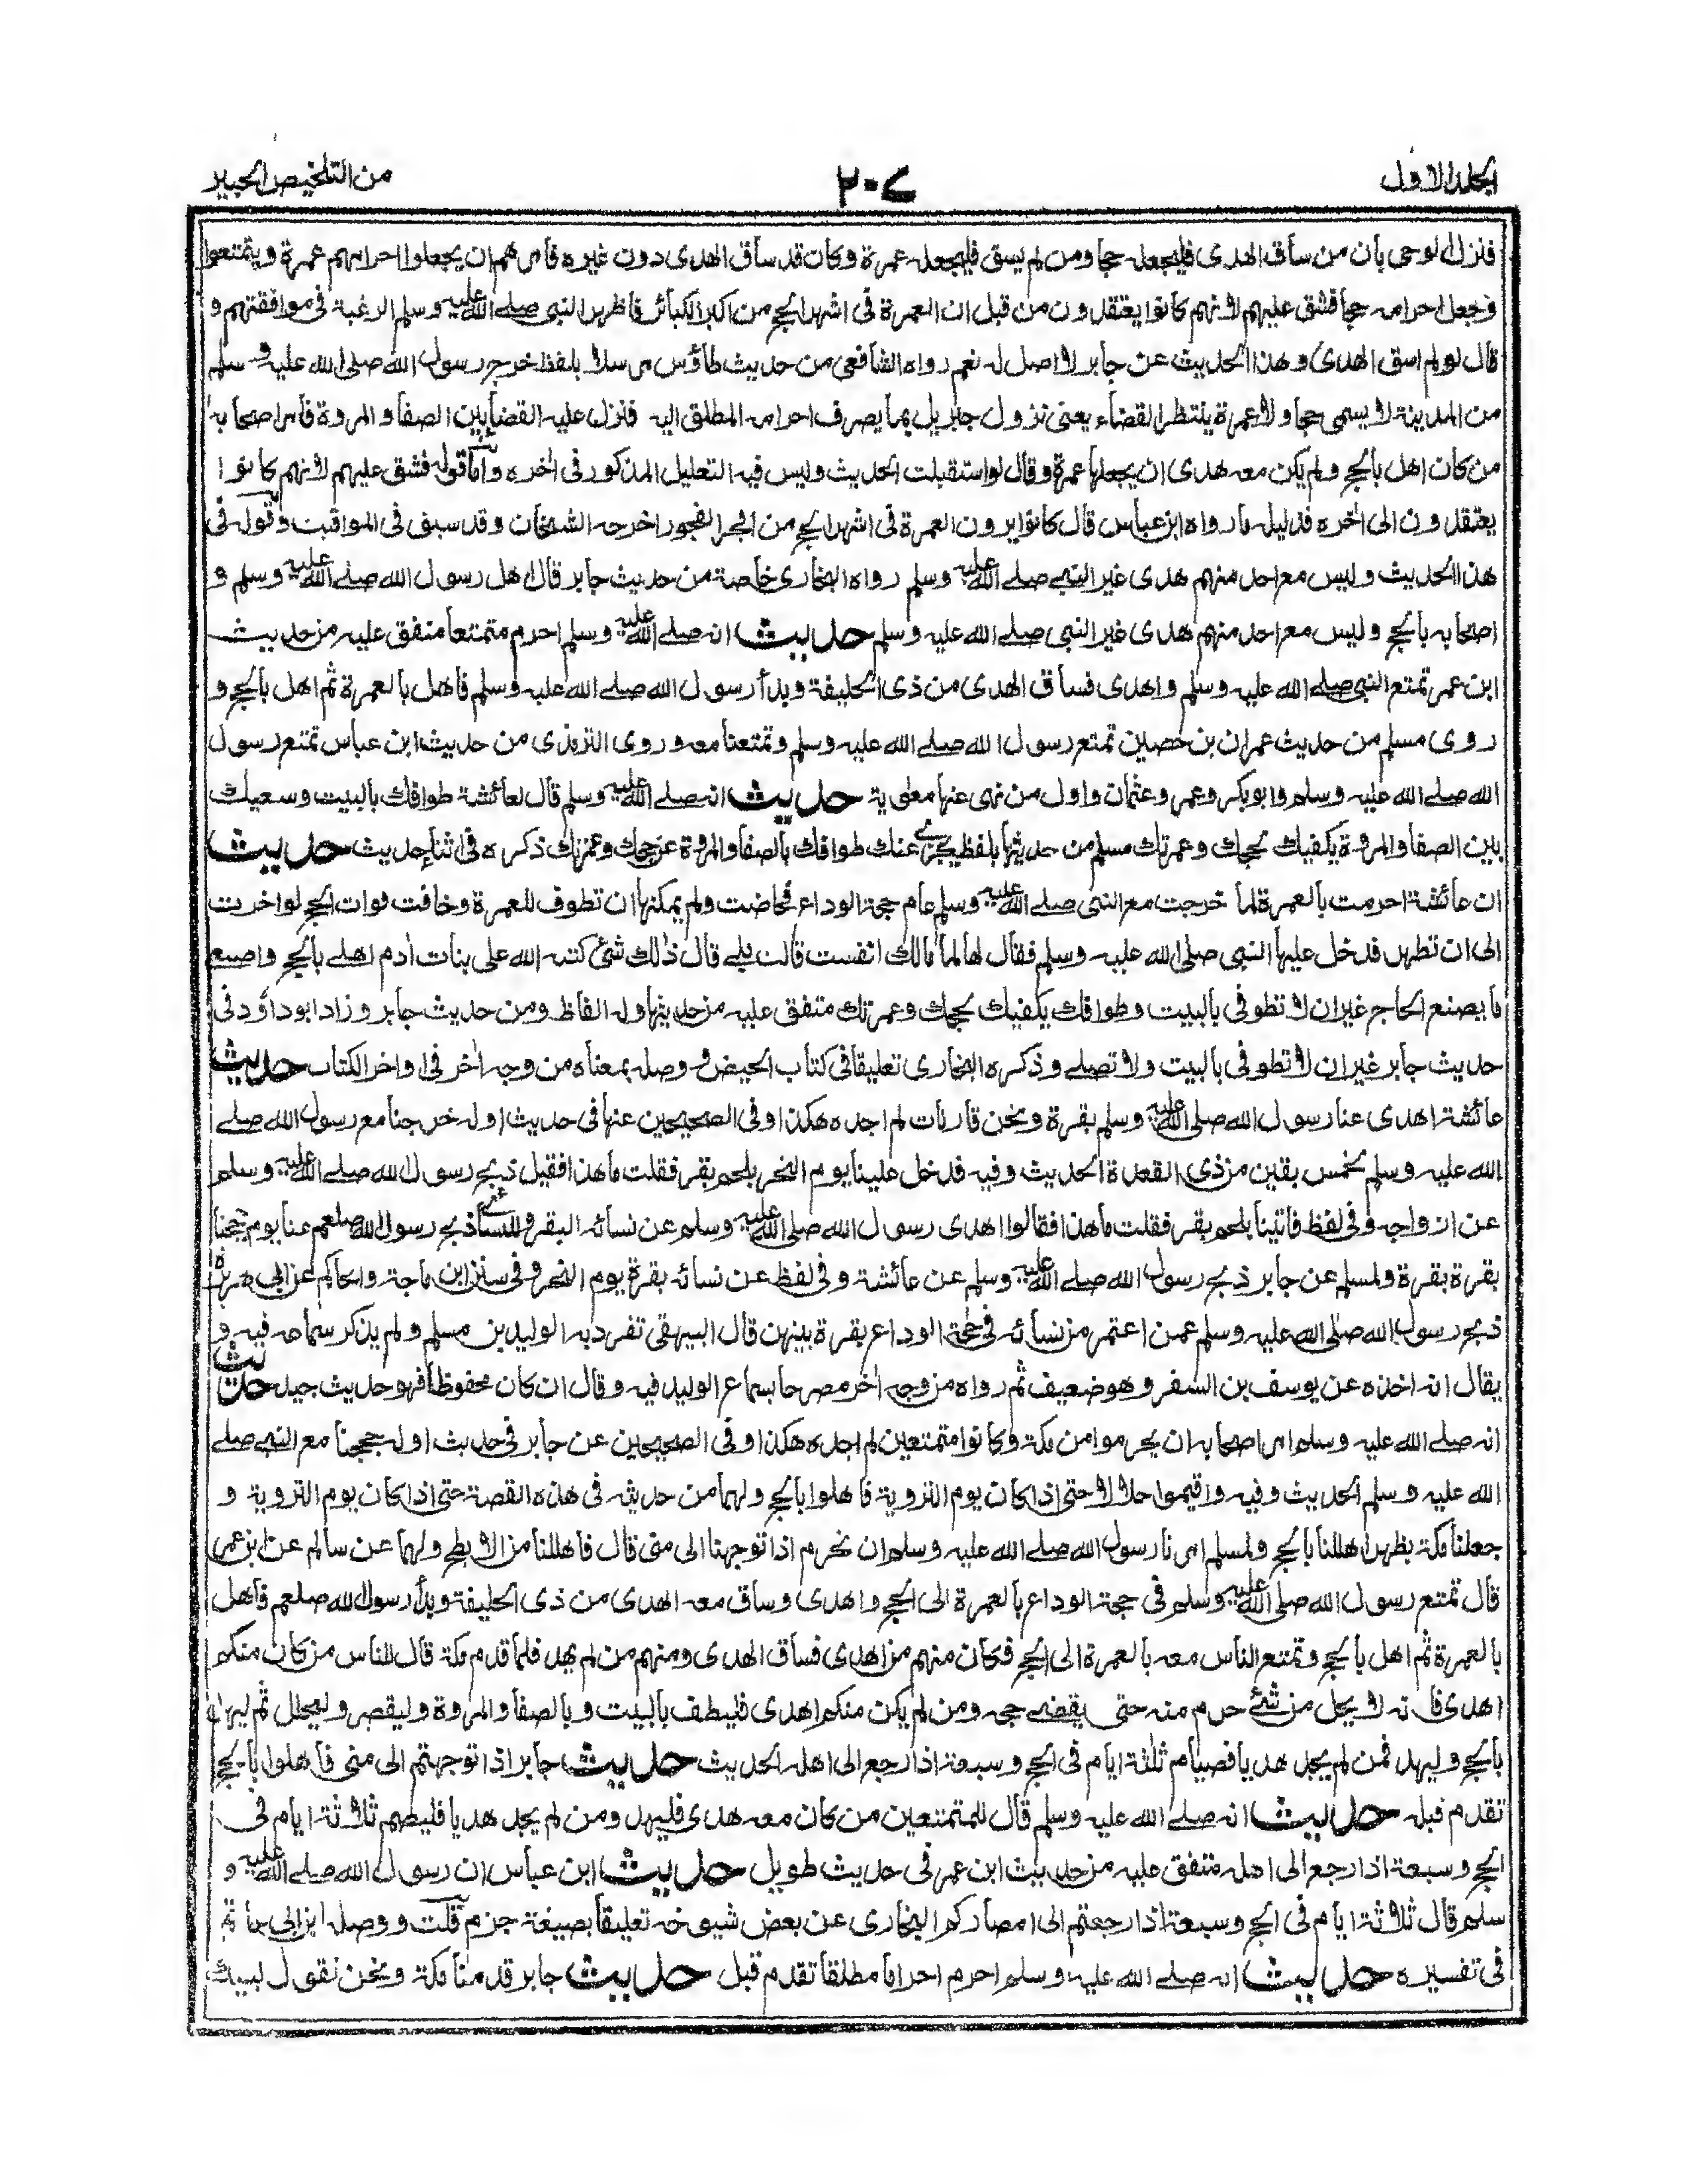 الجلد الاول
٢٠٧
من التلخيص الحبير
فنزل الوحى بان من ساق الهدى فليجعله حجا ومن لم يسق فليجعله عمرة وكان قد ساق الهدى دون غيره فامرهم ان يجعلوا احرامهم عمرة ويتمتعوا
وجعل احرامه حجا فشق عليهم لانهم كانوا يعتقدون من قبل ان العمرة فى اشهر الحج من اكبر الكبائر فاظهر النبى صلے الله عليه وسلم الرغبة فى موافقتهم و
قال لو لم اسق الهدى وهذا الحديث عن جابر لا اصل له نعم رواه الشافعى من حديث طاؤس مرسلا بلفظ خرج رسول الله صلى الله عليه وسلم
من المدينة لا يسمى حجا ولا عمرة ينتظر القضاء يعنى نزول جبريل بما يصرف احرامه المطلق اليه فنزل عليه القضا بين الصفا والمروة فامر اصحابه
من كان اهل بالحج ولم يكن معه هدى ان يجعلها عمرة وقال لو استقبلت الحديث وليس فيه التعليل المذكور فى اٰخره واما قوله فشق عليهم لانهم كانوا
يعتقدون الى اٰخره فدليله ما رواه ابن عباس قال كانوا يرون العمرة فى اشهر الحج من افجر الفجور اخرجه الشيخان وقد سبق فى المواقيت وقوله فى
هذا الحديث وليس مع احد منهم هدى غير النبے صلے الله عليه وسلم رواه البخارى خاصة من حديث جابر قال اهل رسول الله صلے الله عليه وسلم و
اصحابه بالحج وليس مع احد منهم هدى غير النبى صلے الله عليه وسلم حديث انه صلے الله عليه وسلم احرم متمتعا متفق عليه من حديث
ابن عمر تمتع النبى صلے الله عليه وسلم واهدى فساق الهدى من ذى الحليفة وبدأ رسول الله صلے الله عليه وسلم فاهل بالعمرة ثم اهل بالحج و
روى مسلم من حديث عمران بن حصين تمتع رسول الله صلے الله عليه وسلم وتمتعنا معه وروى الترمذى من حديث ابن عباس تمتع رسول
الله صلے الله عليه وسلم وابو بكر وعمر وعثمان واول من نهى عنها معٰوية حديث انه صلے الله عليه وسلم قال لعائشة طوافك بالبيت وسعيك
بين الصفا والمروة يكفيك لحجك وعمرتك مسلم من حديثها بلفظ يجزئ عنك طوافك بالصفا والمروة عن حجك وعمرتك ذكره فى اثناء حديث حديث
ان عائشة احرمت بالعمرة لما خرجت مع النبى صلے الله عليه وسلم عام حجة الوداع فحاضت ولم يمكنها ان تطوف للعمرة وخافت فوات الحج لو اخرت
الى ان تطهر فدخل عليها النبى صلى الله عليه وسلم فقال لها لما مالك انفست قالت بلے قال ذٰلك شئ كتبه الله على بنات اٰدم اهلے بالحج واصنعے
ما يصنع الحاج غير ان لا تطوفى بالبيت وطوافك يكفيك لحجك وعمرتك متفق عليه من حديثها وله الفاظ ومن حديث جابر وزاد ابو داؤد فى
حديث جابر غير ان لا تطوفى بالبيت ولا تصلے وذكره البخارى تعليقا فى كتاب الحيض ووصله بمعناه من وجه اٰخر فى اواخر الكتاب حديث
عائشة اهدى عنا رسول الله صلى الله عليه وسلم بقرة ونحن قارنات لم اجده هكذا وفى الصحيحين عنها فى حديث اوله خرجنا مع رسول الله صلے
الله عليه وسلم لخمس بقين من ذى القعدة الحديث وفيه فدخل علينا يوم النحر بلحم بقر فقلت ما هذا فقيل ذبح رسول الله صلے الله عليه وسلم
عن ازواجه وفى لفظ فاتينا بلحم بقر فقلت ما هذا فقالوا اهدى رسول الله صلى الله عليه وسلم عن نسائه البقر وللنسائى ذبح رسول الله صلعم عنا يوم حججنا
بقرة بقرة ولمسلم عن جابر ذبح رسول الله صلے الله عليه وسلم عن عائشة وفى لفظ عن نسائه بقرة يوم النحر وفى سنن ابن ماجة والحاكم عن ابى هريرة
ذبح رسول الله صلى الله عليه وسلم عمن اعتمر من نسائه فى حجة الوداع بقرة بينهن قال البيهقى تفرد به الوليد بن مسلم ولم يذكر سماعه فيه و
يقال انه اخذه عن يوسف بن السفر وهو ضعيف ثم رواه من وجه اٰخر مصرحا بسماع الوليد فيه وقال ان كان محفوظا فهو حديث جيد حديث
انه صلے الله عليه وسلم امر اصحابه ان يحرموا من مكة وكانوا متمتعين لم اجده هكذا وفى الصحيحين عن جابر فى حديث اوله حججنا مع النبے صلے
الله عليه وسلم الحديث وفيه واقيموا حلالا حتى اذا كان يوم التروية فاهلوا بالحج ولهما من حديثه فى هذه القصة حتى اذا كان يوم التروية و
جعلنا مكة بظهر اهللنا بالحج ولمسلم امرنا رسول الله صلے الله عليه وسلم ان نحرم اذا توجهنا الى منى قال فاهللنا من الابطح ولهما عن سالم عن ابن عمر
قال تمتع رسول الله صلى الله عليه وسلم فى حجة الوداع بالعمرة الى الحج واهدى وساق معه الهدى من ذى الحليفة وبدأ رسول الله صلعم فاهل
بالعمرة ثم اهل بالحج وتمتع الناس معه بالعمرة الى الحج فكان منهم من اهدى فساق الهدى ومنهم من لم يهد فلما قدم مكة قال للناس من كان منكم
اهدى فانه لا يحل من شئے حرم منه حتى يقضے حجه ومن لم يكن منكم اهدى فليطف بالبيت وبالصفا والمروة وليقصر وليحلل ثم ليهل
بالحج وليهد فمن لم يجد هديا فصيام ثلٰثة ايام فى الحج وسبعة اذا رجع الى اهله الحديث حديث جابر اذا توجهتم الى منى فاهلوا بالحج
تقدم قبله حديث انه صلے الله عليه وسلم قال للمتمتعين من كان معه هدى فليهد ومن لم يجد هديا فليصم ثلاثة ايام فى
الحج وسبعة اذا رجع الى اهله متفق عليه من حديث ابن عمر فى حديث طويل حديث ابن عباس ان رسول الله صلے الله عليه و
سلم قال ثلاثة ايام فى الحج وسبعة اذا رجعتم الى امصاركم البخارى عن بعض شيوخه تعليقا بصيغة جزم قلت ووصله ابن ابى حاتم
فى تفسيره حديث انه صلے الله عليه وسلم احرم احراما مطلقا تقدم قبل حديث جابر قدمنا مكة ونحن نقول لبيك